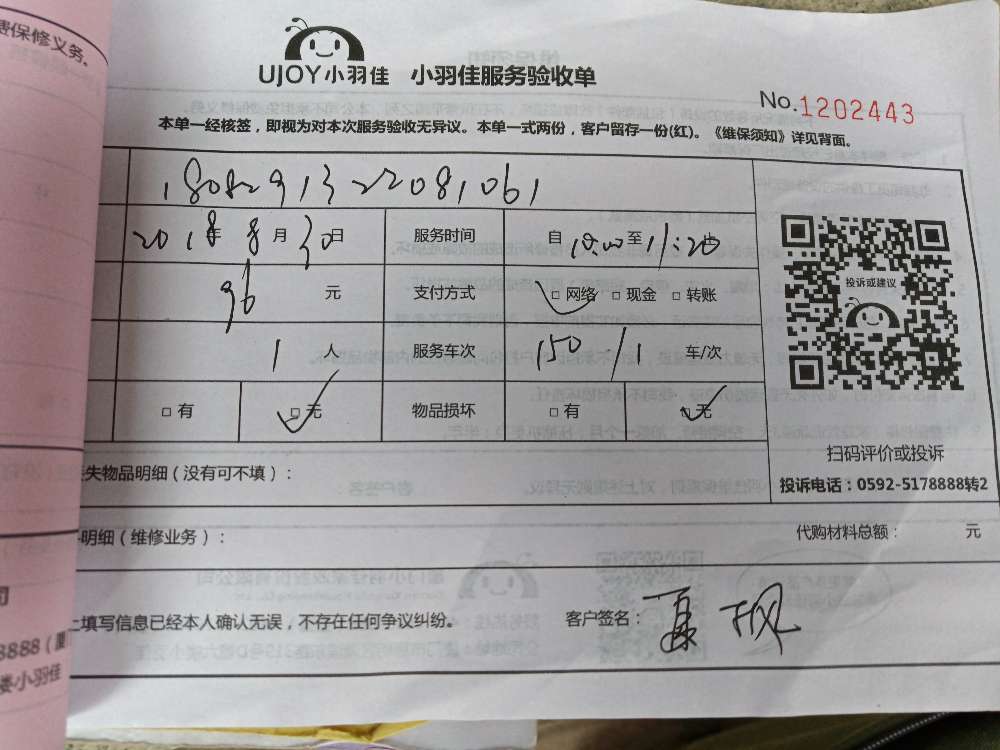 费保修义务。
UJOY小羽佳 小羽佳服务验收单
No.1202443
本单一经核签，即视为对本次服务验收无异议。本单一式两份，客户留存一份(红)。《维保须知》详见背面。
1808291322081061
2018年8月30日 服务时间 自10:00至11:20止
96元 支付方式 □网络 □现金 □转账
投诉或建议
1人 服务车次 150/1车/次
□有 □无 物品损坏 □有 □无
扫码评价或投诉
失物品明细（没有可不填）：
投诉电话：0592-5178888转2
明细（维修业务）： 代购材料总额： 元
司
上填写信息已经本人确认无误，不存在任何争议纠纷。 客户签名：夏枫
8888（厦
楼小羽佳